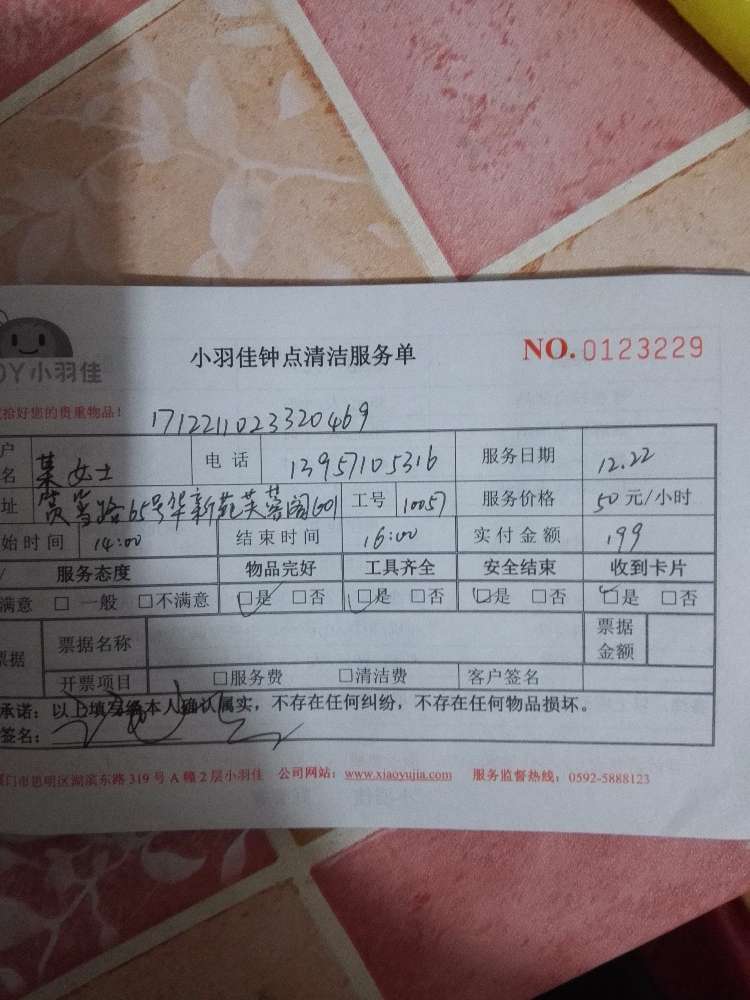 小羽佳钟点清洁服务单 NO. 0123229
OY小羽佳
拾好您的贵重物品!
1712211023320469
户名 某女士 电话 13957105316 服务日期 12.22
址 莲路65号华新苑芙蓉阁601 工号 10057 服务价格 50元/小时
始时间 14:00 结束时间 16:00 实付金额 199
服务态度 物品完好 工具齐全 安全结束 收到卡片
满意 □ 一般 □不满意 □是 □否 □是 □否 □是 □否 □是 □否
票据 票据名称 票据金额
开票项目 □服务费 □清洁费 客户签名
承诺:以上填写经本人确认属实,不存在任何纠纷,不存在任何物品损坏。
签名:
门市思明区湖滨东路 319 号 A 幢 2 层小羽佳 公司网站:www.xiaoyujia.com 服务监督热线:0592-5888123